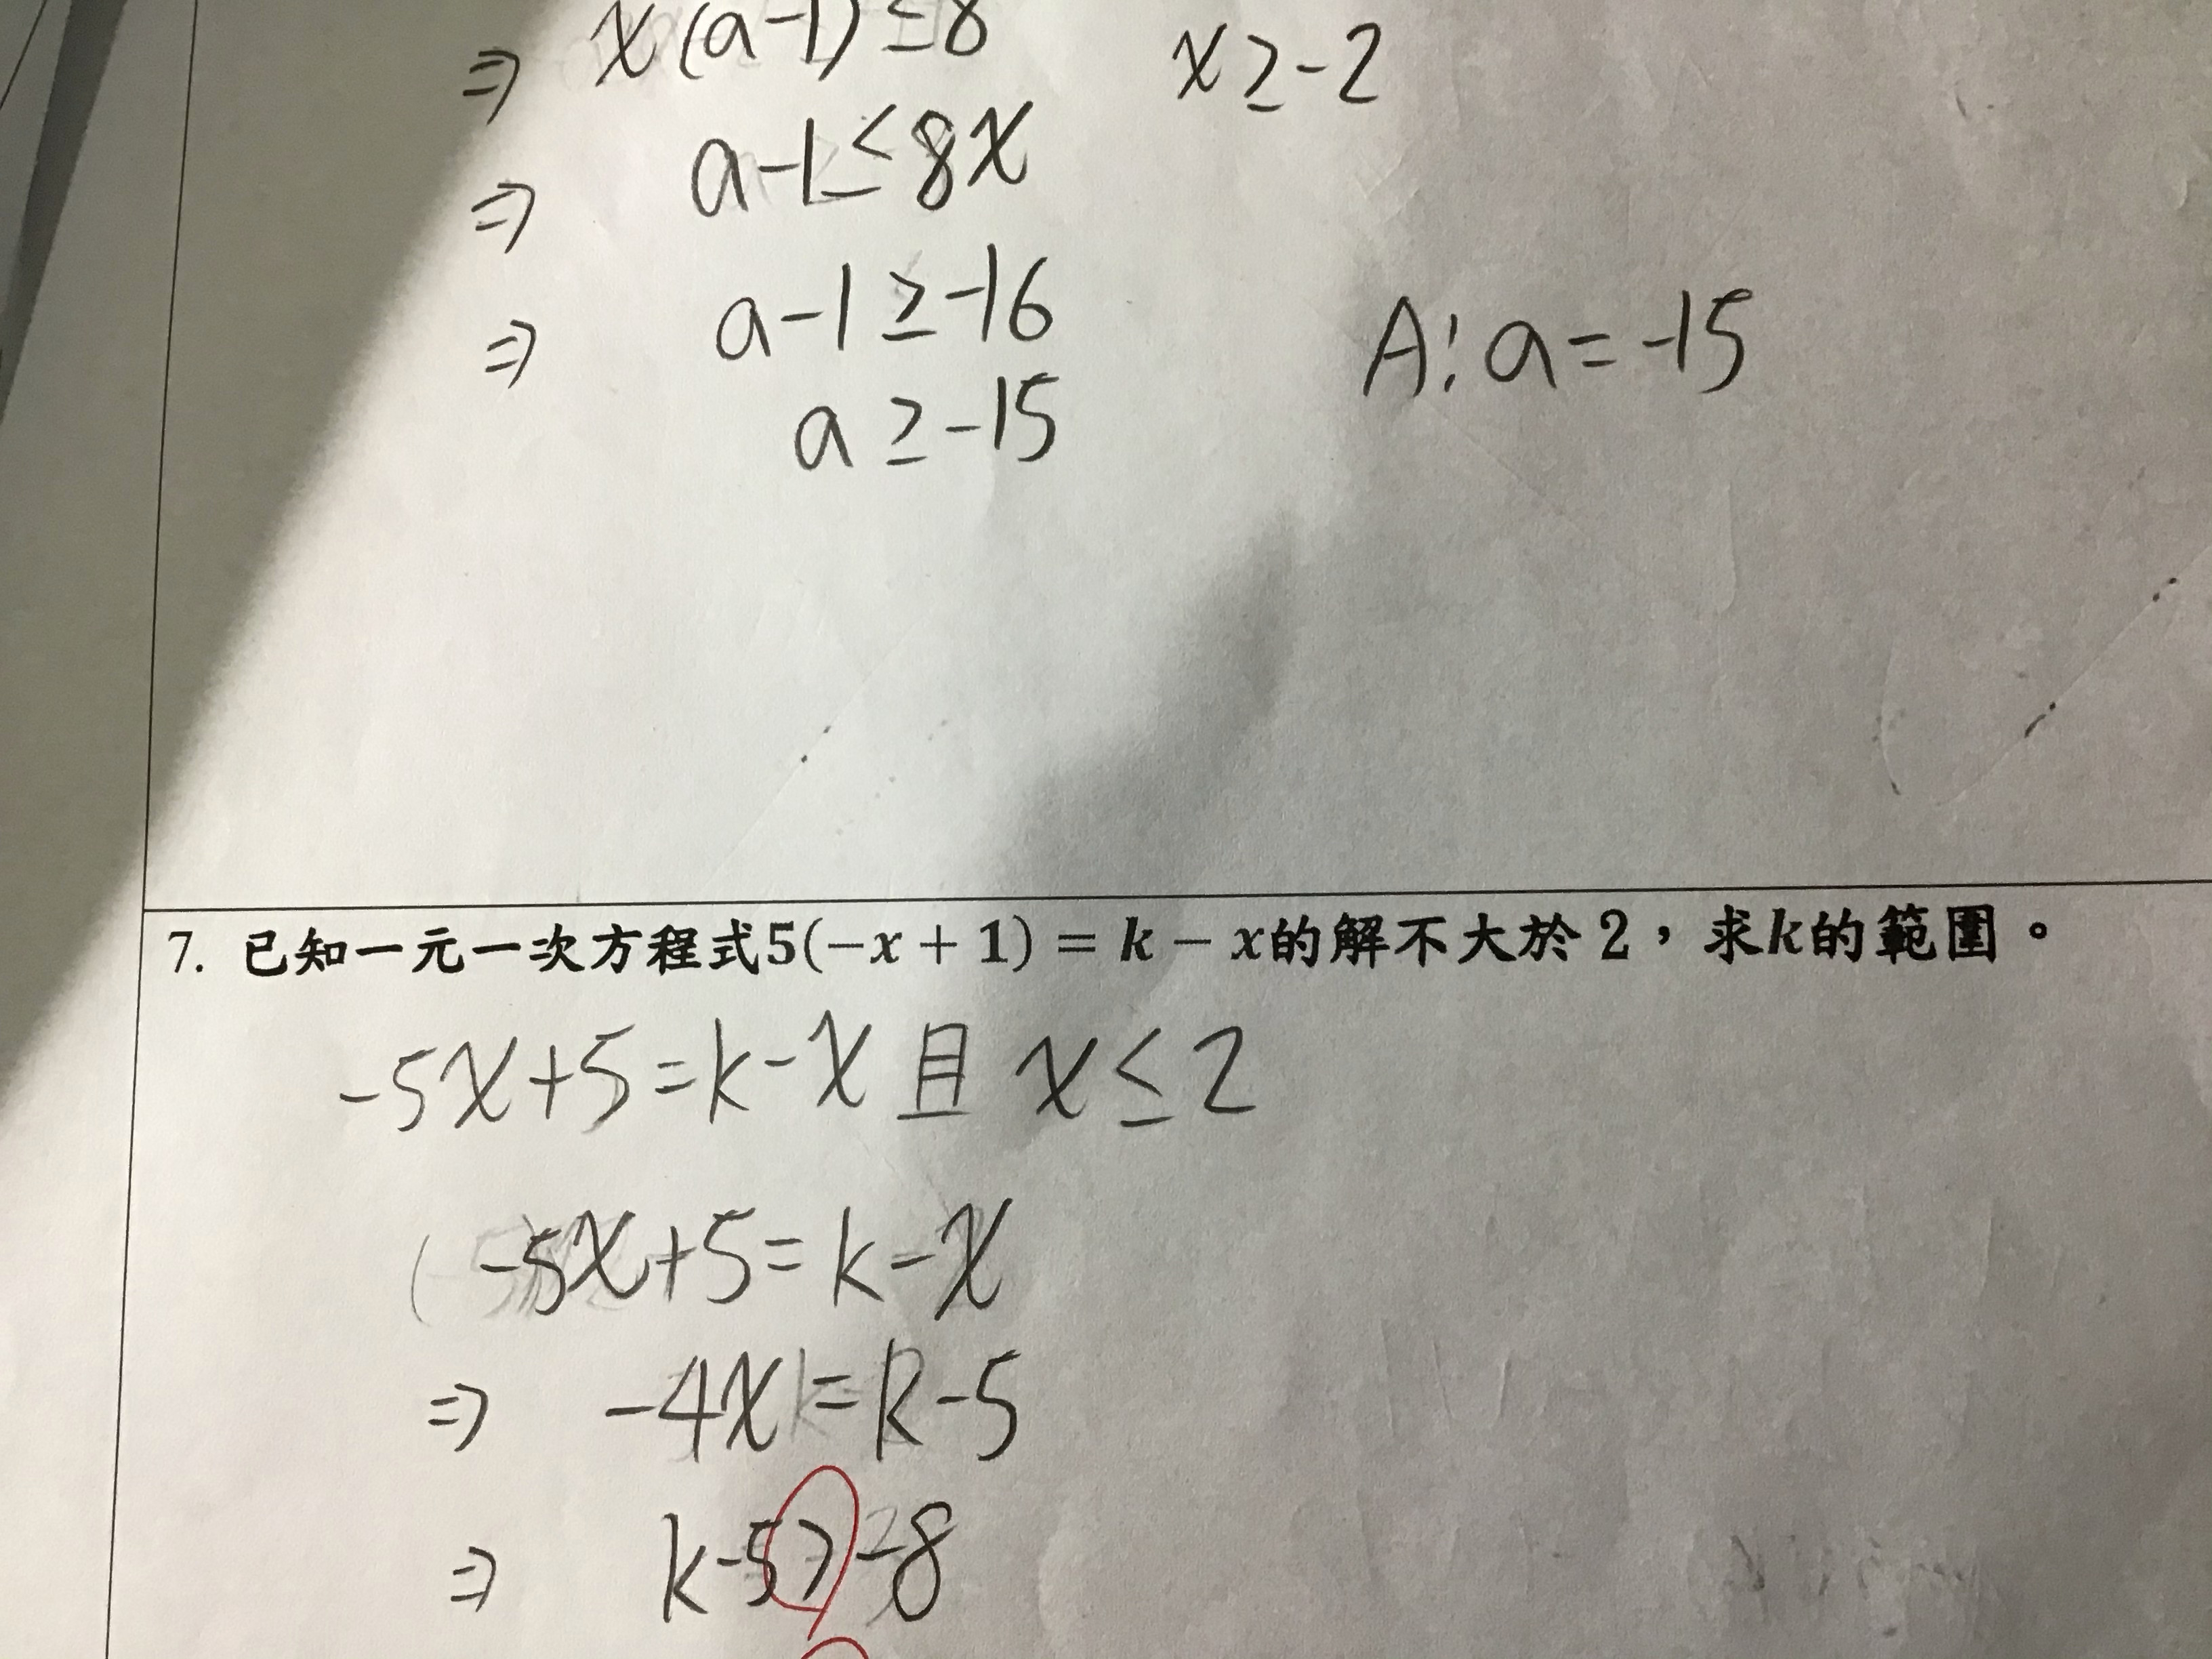 ⇒ x(a-1)≤8 x≥-2
⇒ a-1≤8x
⇒ a-1≥-16
a≥-15
A: a=-15
7. 已知一元一次方程式5(−x + 1) = k − x的解不大於 2，求k的範圍。
-5x+5=k-x 且 x≤2
-5x+5=k-x
⇒ -4x=k-5
⇒ k-5>-8